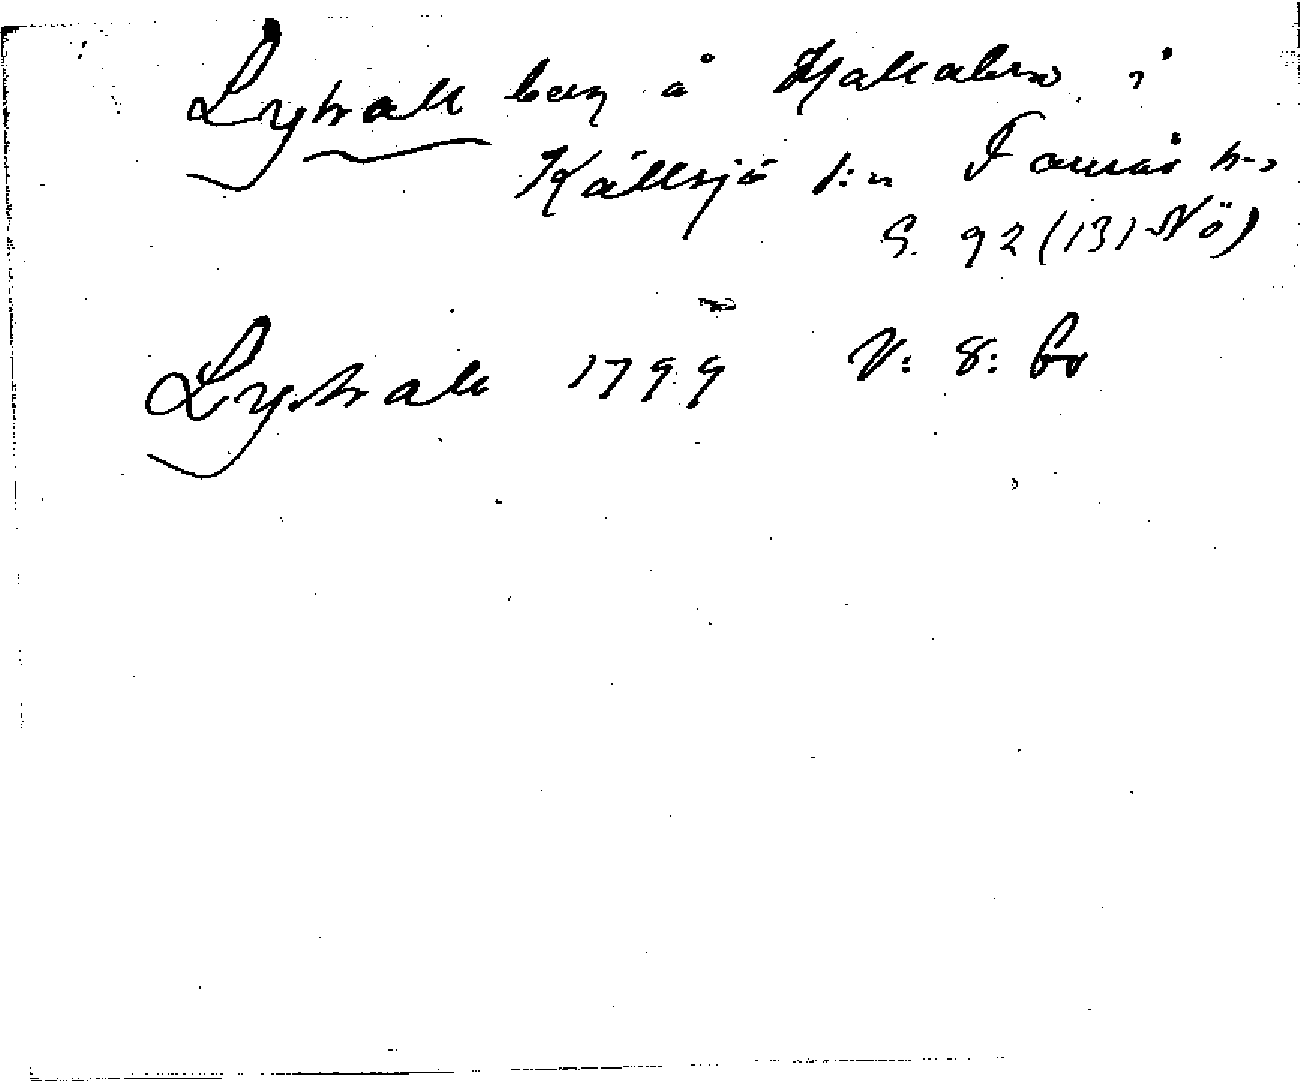 Lyhall berg å Hallabro, i
Källsjö s:n Faurås h-d
S. 92 (131 NÖ)
Lyhall 1799 V: 8: 60